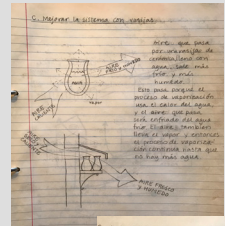 C. Mejorar la sistema con vasijas
Aire que pasa
por una vasija de
agua, sale más
frío y más
húmedo.
Esto pasa porque el
proceso de vaporización
usa el calor del agua,
y el aire que pasa
será enfriado del agua
fría. El aire también
lleva el vapor y entonces
el proceso de vaporiza-
ción continúa hasta que
no hay más agua.
AIRE
vapor
AIRE FRESCO
Y HÚMEDO